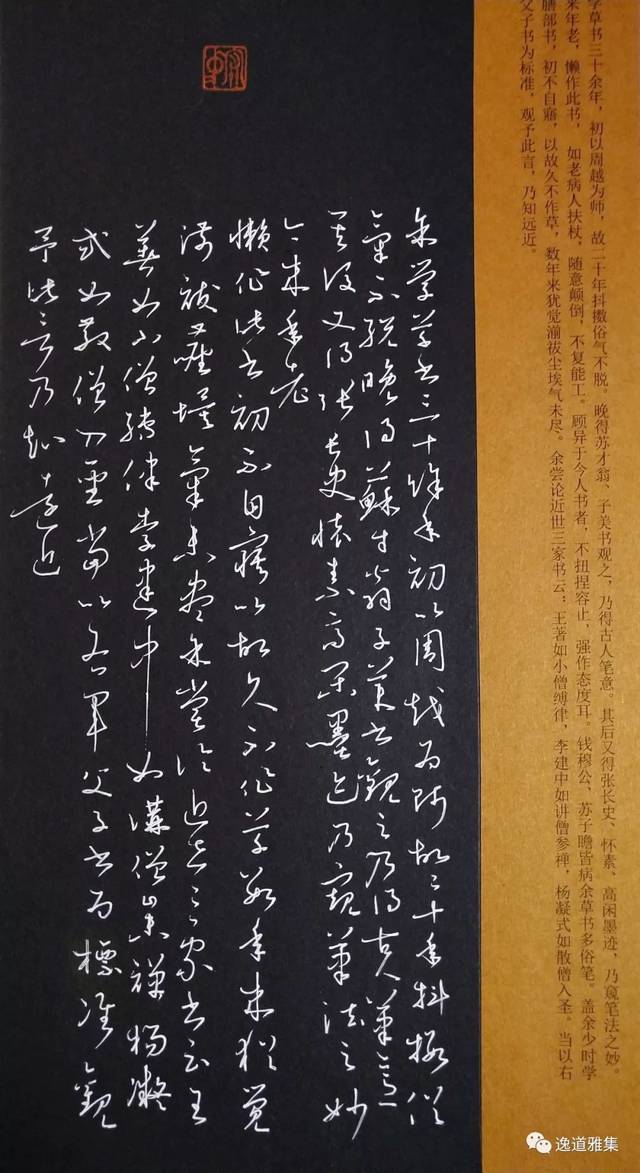 学草书三十余年，初以周越为师，故二十年抖擞俗气不脱。晚得苏才翁、子美书观之，乃得古人笔意。其后又得张长史、怀素、高闲墨迹，乃窥笔法之妙。
来年老，懒作此书，如老病人扶杖，随意颠倒，不复能工。顾异于今人书者，不扭捏容止，强作态度耳。钱穆公、苏子瞻皆病余草书多俗笔。盖余少时学
膳部书，初不自寤，以故久不作草，数年来犹觉湔祓尘埃气未尽。余尝论近世三家书云：王著如小僧缚律，李建中如讲僧参禅，杨凝式如散僧入圣。当以右
父子书为标准，观予此言，乃知远近。
余學草書三十餘年初以周越為師故二十年抖擻俗
氣不脱晚得蘇才翁子美書觀之乃得古人筆意
其後又得張長史懷素高閑墨迹乃窺筆法之妙
今来年老
懶作此書初不自寤以故久不作草數年来猶覺
湔祓塵埃氣未盡余嘗論近世三家書云王
著如小僧縛律李建中如講僧參禪楊凝
式如散僧入聖當以右軍父子書為標准觀
予此言乃知遠近
逸道雅集